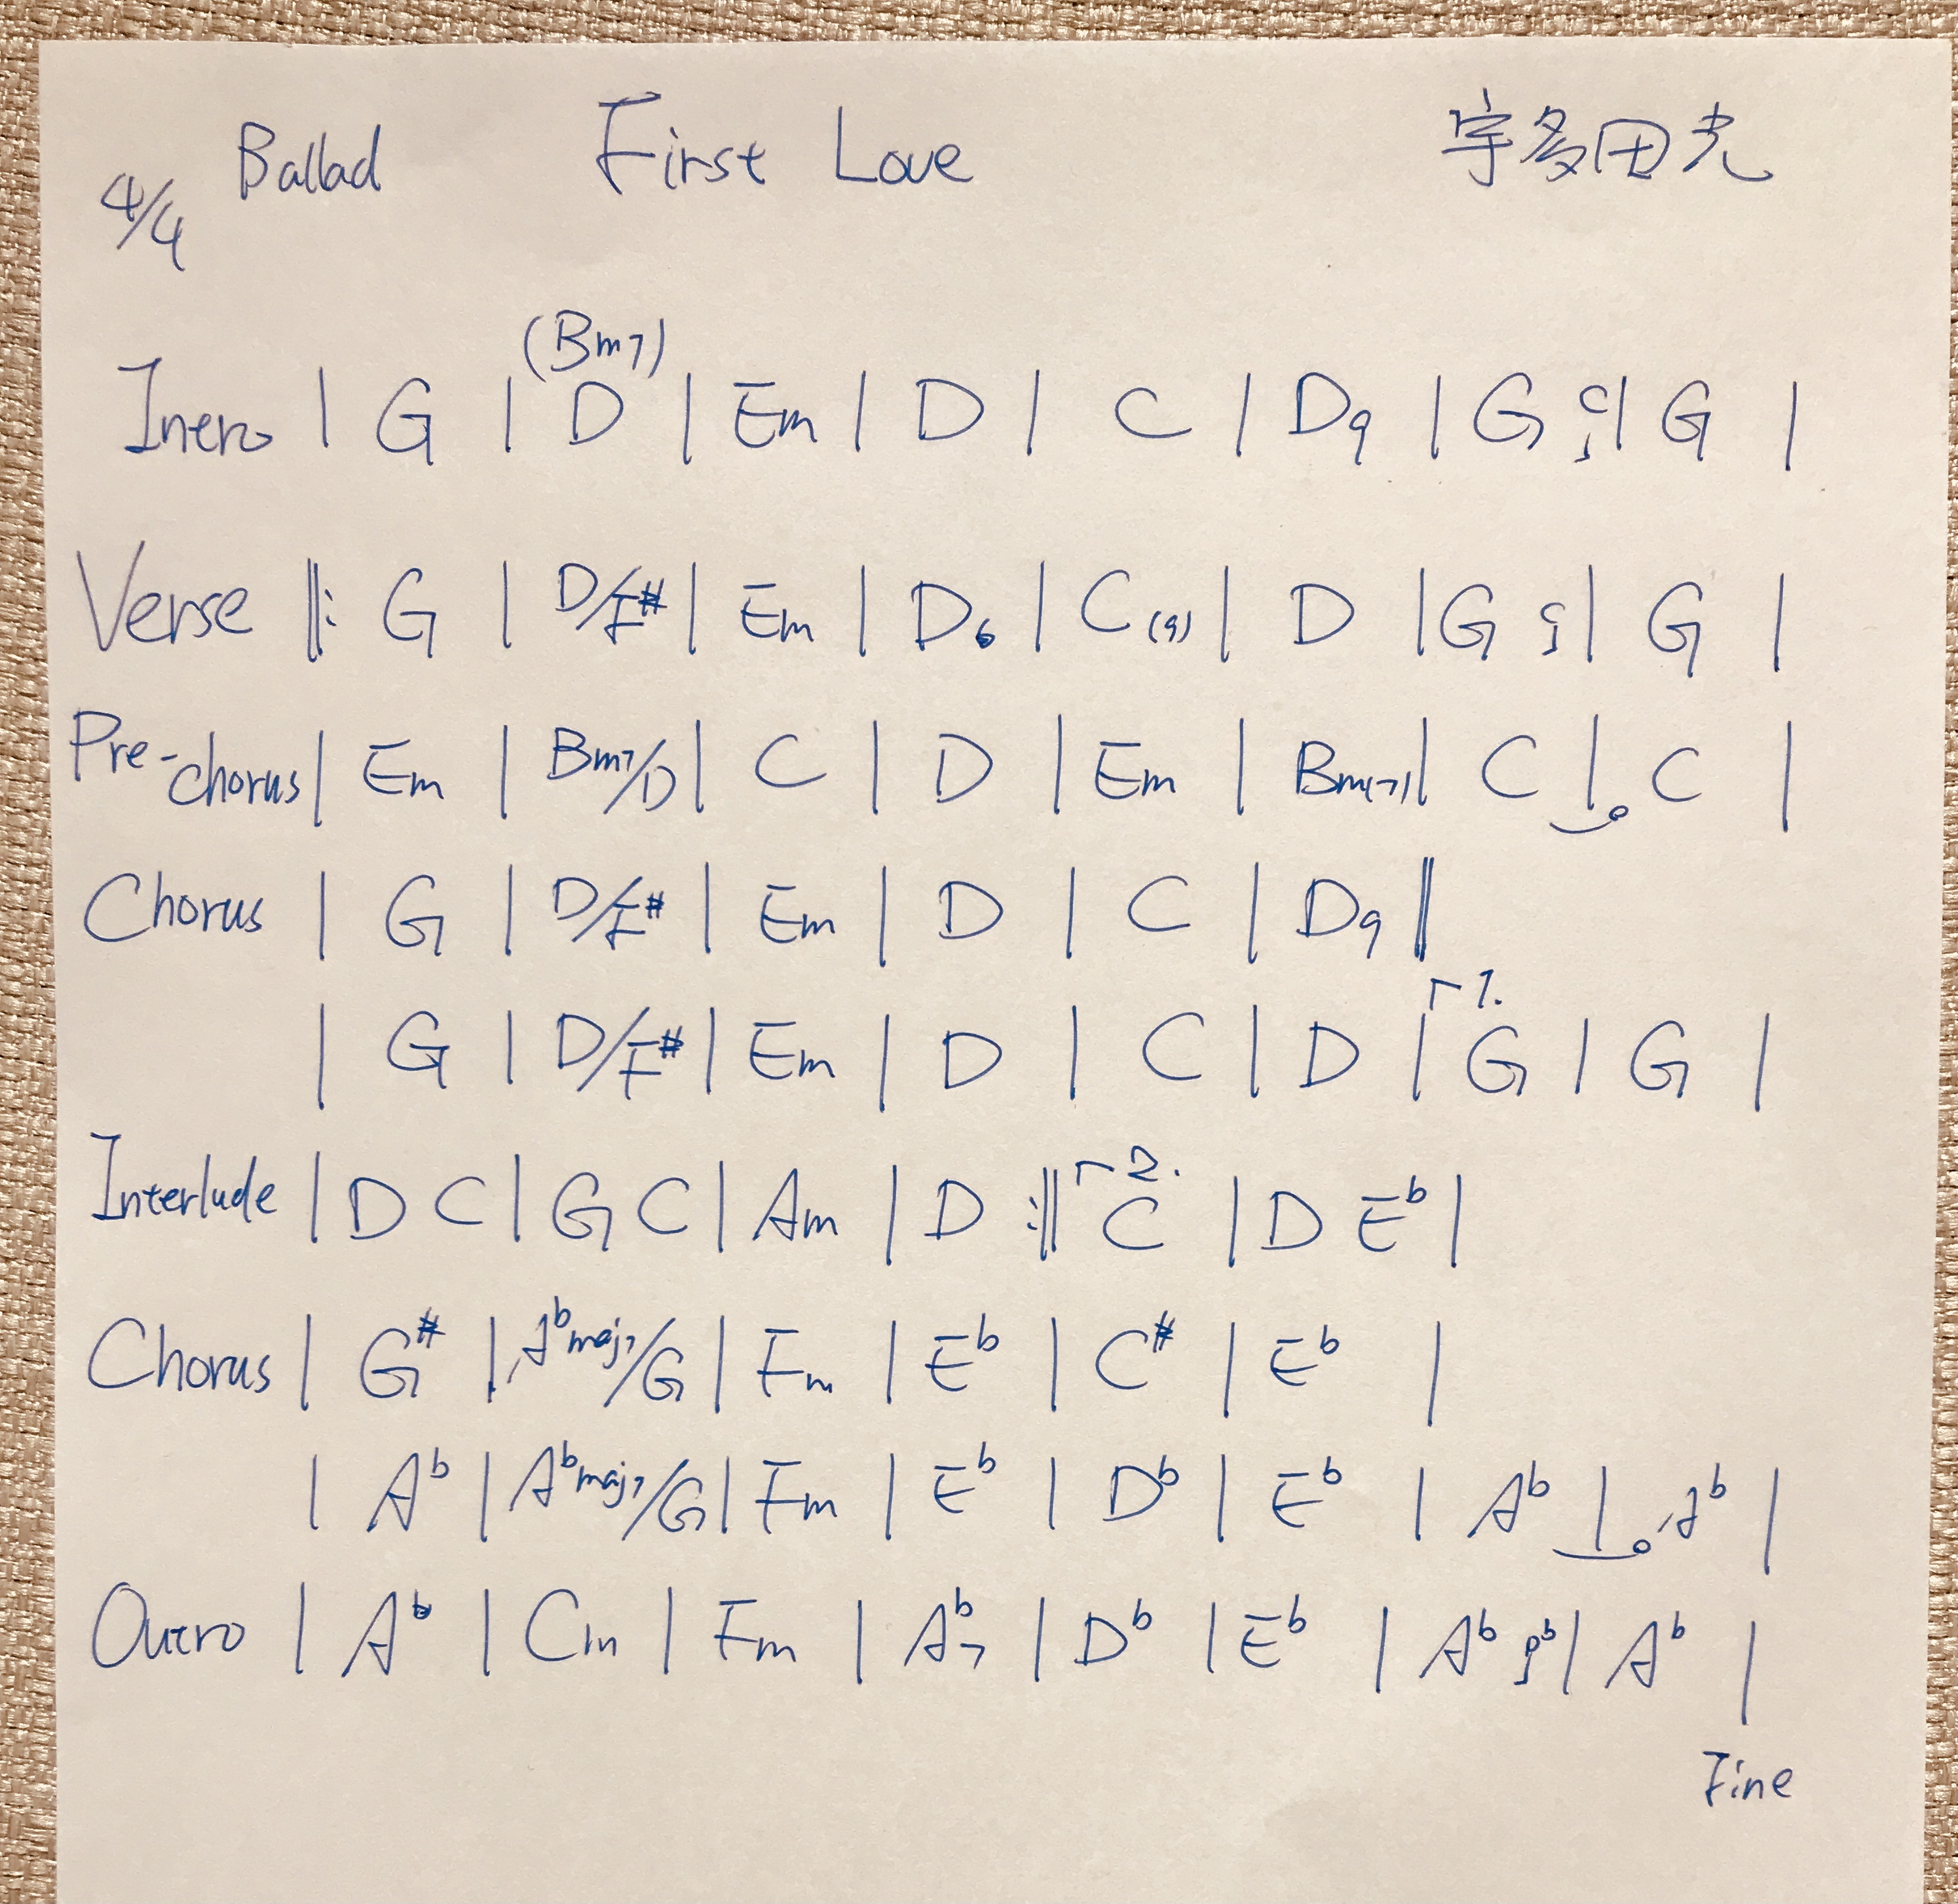 Ballad First Love 宇多田光
4/4
(Bm7)
Intro | G | D | Em | D | C | D9 | G C | G |
Verse ‖: G | D/F# | Em | D6 | C(9) | D | G | G |
Pre-chorus | Em | Bm7/D | C | D | Em | Bm(7) | C | C |
Chorus | G | D/F# | Em | D | C | D9 ‖
┌1.
| G | D/F# | Em | D | C | D | G | G |
┌2.
Interlude | D C | G C | Am | D :‖ C | D Eb |
Chorus | G# | Abmaj7/G | Fm | Eb | C# | Eb |
| Ab | Abmaj7/G | Fm | Eb | Db | Eb | Ab | Ab |
Outro | Ab | Cm | Fm | Ab7 | Db | Eb | Ab | Ab |
Fine